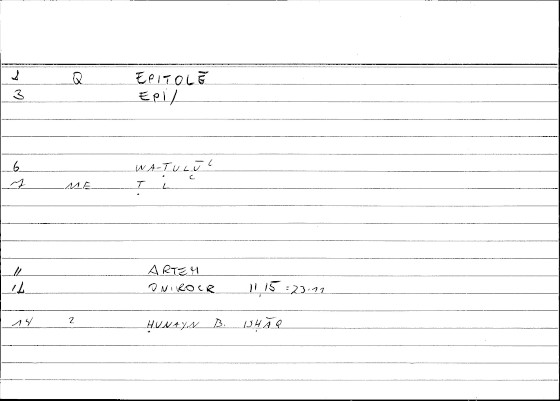 1 Q EPITOLĒ
3 EPI/
6 WA-ṬULŪʿ
7 ME Ṭ L ʿ
11 ARTEM
12 ONIROCR 11,15 : 23.11
14 2 ḤUNAYN B. ISḤĀQ